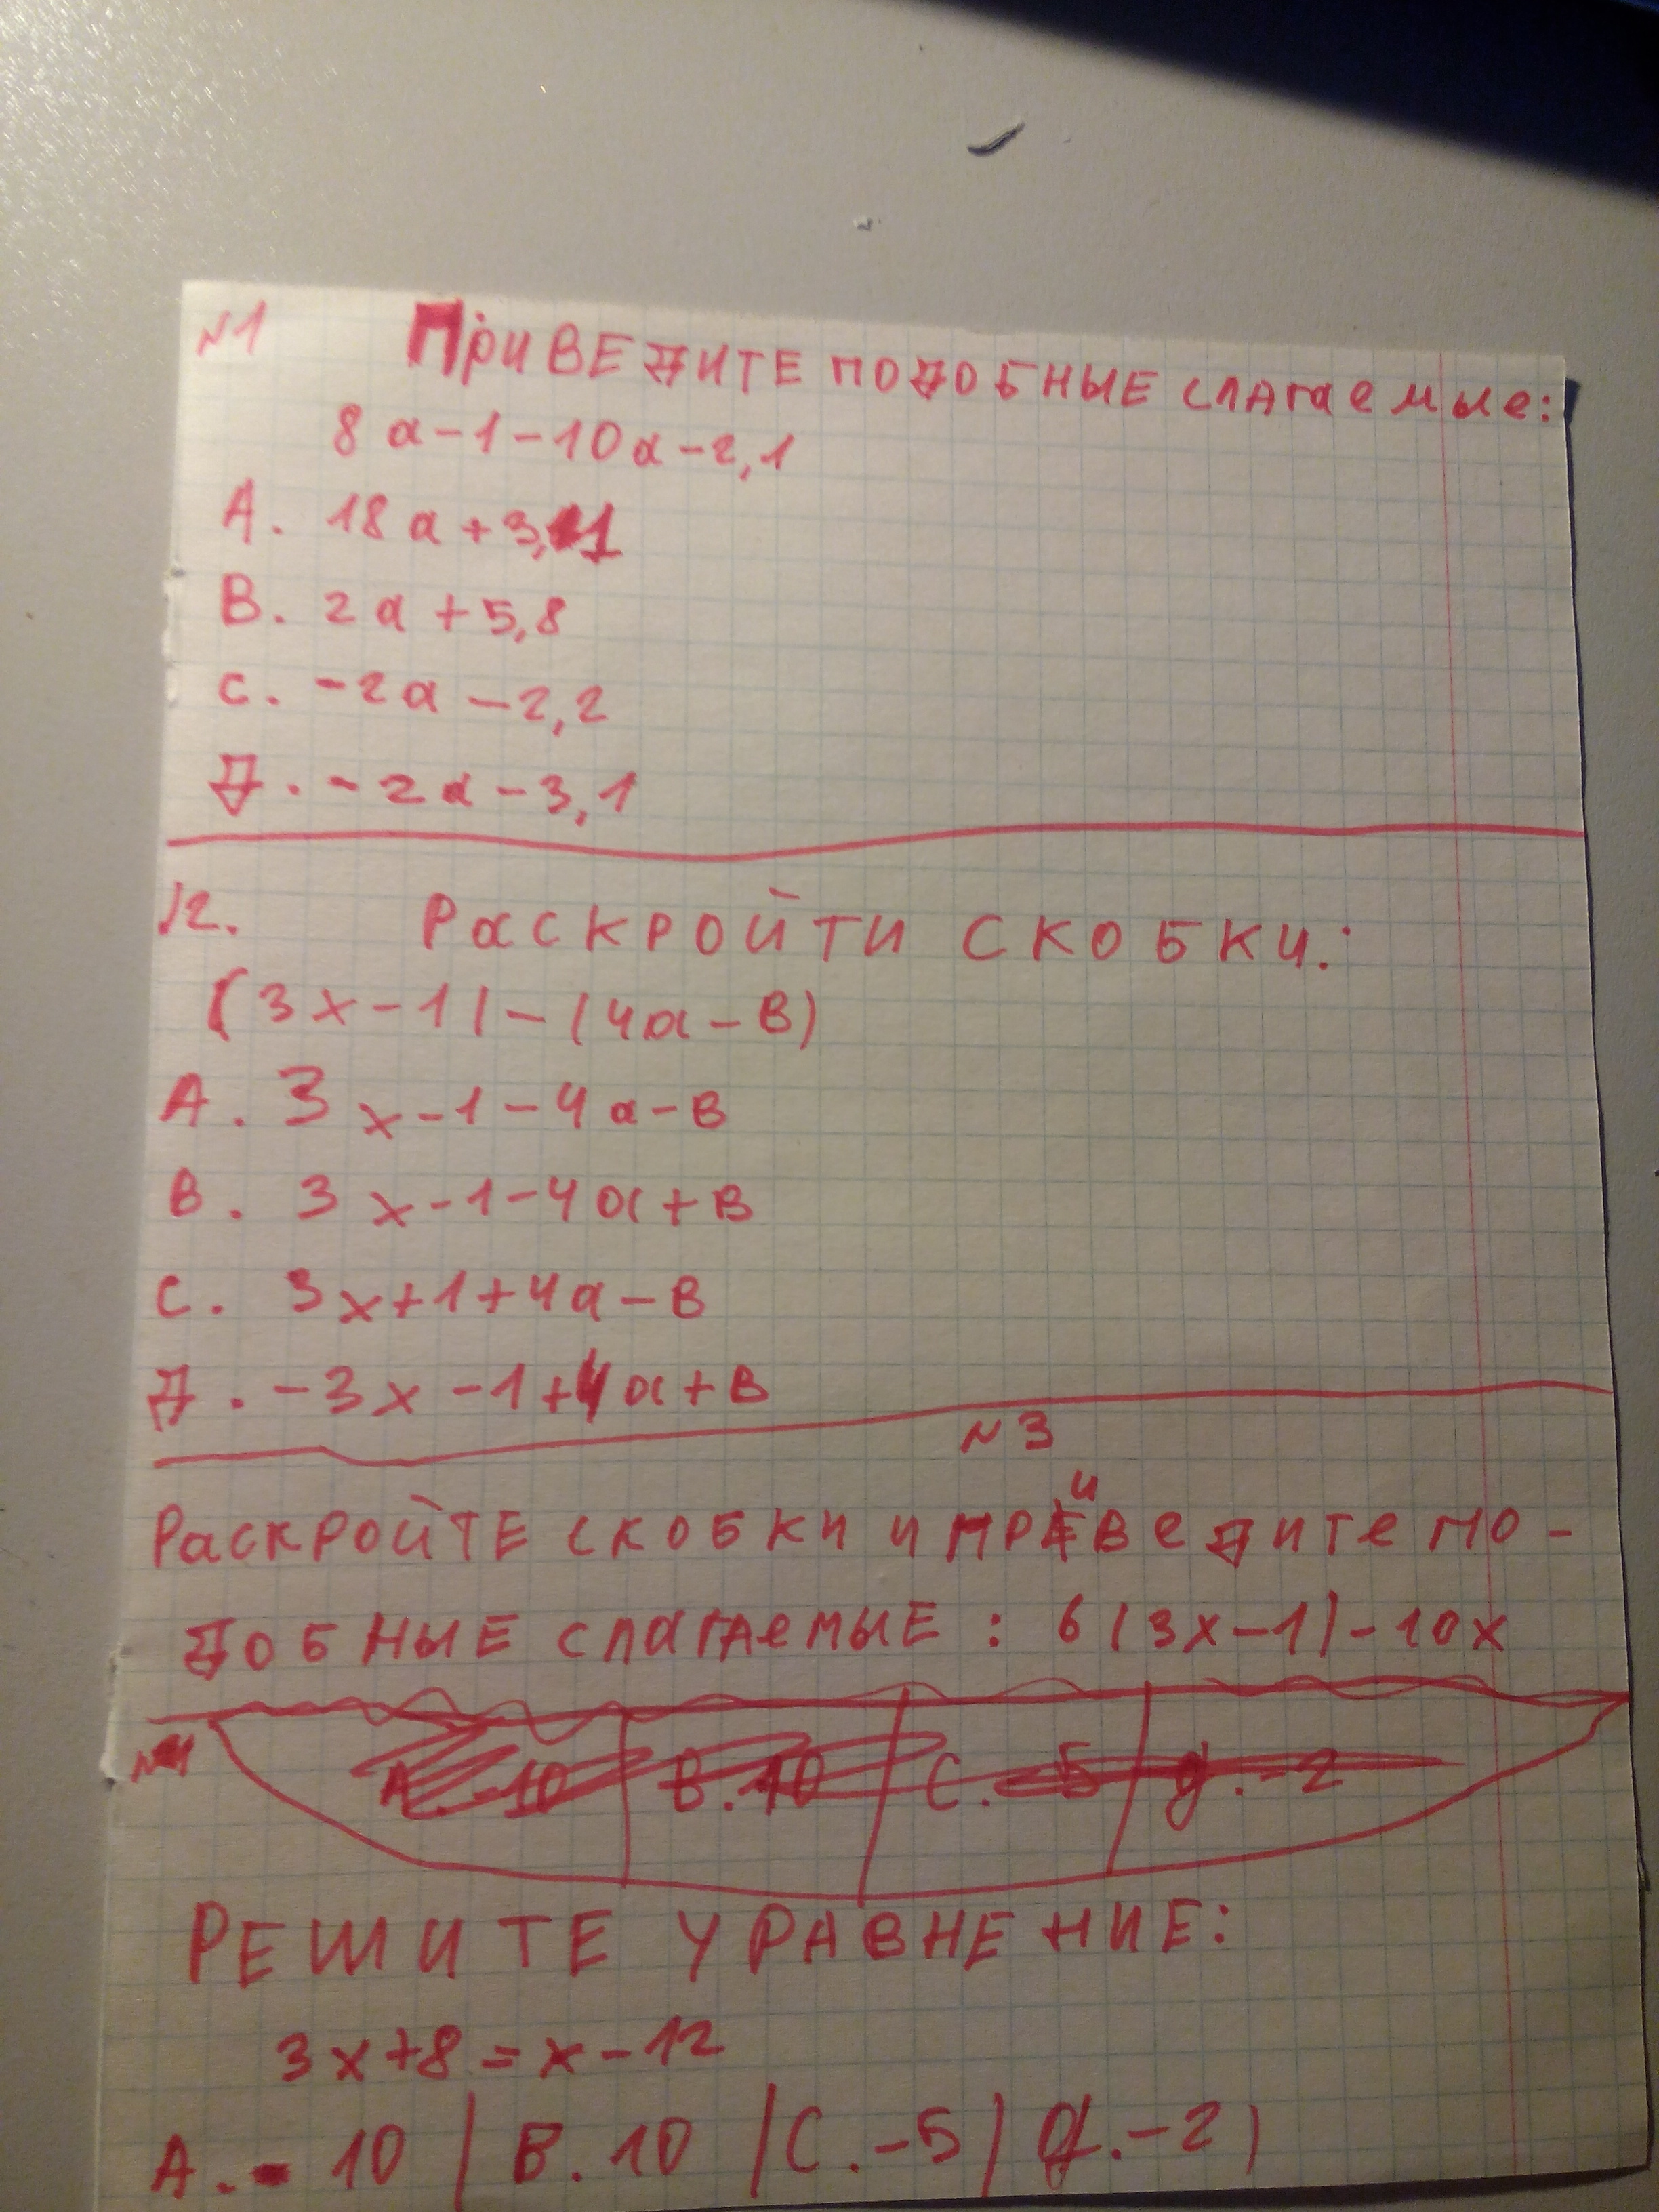 №1 Приведите подобные слагаемые:
8a-1-10a-2,1
A. 18a+3,1
B. 2a+5,8
C. -2a-2,2
Д. -2a-3,1
№2. Раскройти скобки:
(3x-1)-(4a-в)
A. 3x-1-4a-в
B. 3x-1-4a+в
C. 3x+1+4a-в
Д. -3x-1+4a+в
№3
Раскройте скобки и приведите по-
добные слагаемые: 6(3x-1)-10x
№4 A. -10 B. 10 C. -5 д. -2
Решите уравнение:
3x+8=x-12
A. -10 | B. 10 | C. -5 | д. -2 |